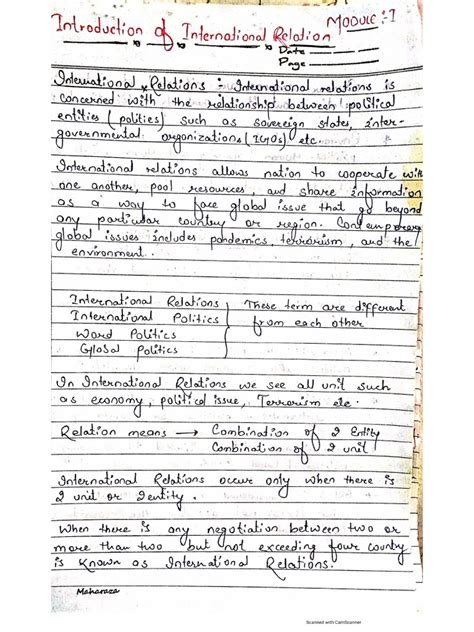 Introduction of International Relation MODULE :-I
Date
Page
International Relations :- International relations is
concerned with the relationship between political
entities (polities) such as sovereign states, inter-
governmental organizations (IGOs) etc.
International relations allows nation to cooperate with
one another, pool resources, and share information
as a way to face global issue that go beyond
any particular country or region. Contemporary
global issues includes pandemics, terrorism, and the
environment.
International Relations
International Politics
Word Politics
Global Politics
These term are different
from each other
In International Relations we see all unit such
as economy, political issue, Terrorism etc.
Relation means → Combination of 2 Entity
Combination of 2 unit
International Relations occur only when there is
2 unit or Identity.
When there is any negotiation between two or
more than two but not exceeding four county
is known as International Relations.
Maharaza
Scanned with CamScanner